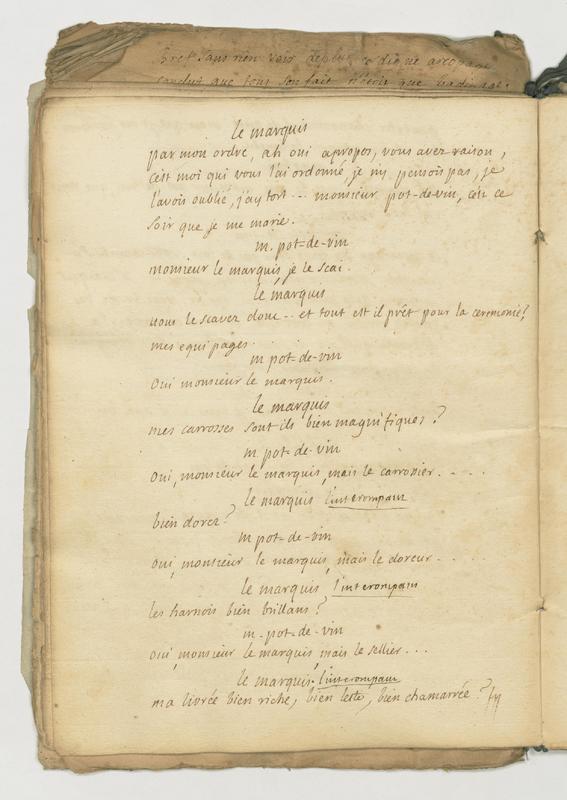 bref sans rien voir depuis ce digne
conduit que tout son fait n'étoit que badinage.
le marquis
par mon ordre, ah oui apropos, vous avez raison,
c'est moi qui vous l'ai ordonné, je n'y pensois pas, je
l'avois oublié, j'ay tort -- monsieur pot-de-vin, c'est ce
soir que je me marie.
m. pot-de-vin
monsieur le marquis, je le scai.
le marquis
vous le scavez donc -- et tout est il prêt pour la ceremonie?
mes equipages.
m pot-de-vin
oui monsieur le marquis.
le marquis
mes carrosses sont ils bien magnifiques?
m pot-de-vin
oui, monsieur le marquis, mais le carrossier. - - .
le marquis l'interompant
bien dorez?
m pot-de-vin
oui, monsieur le marquis, mais le doreur - . . .
le marquis l'interompant
les harnois bien brillans?
m-pot-de-vin
oui, monsieur le marquis, mais le sellier. . .
le marquis. l'interompant
ma livrée bien riche, bien leste, bien chamarrée?